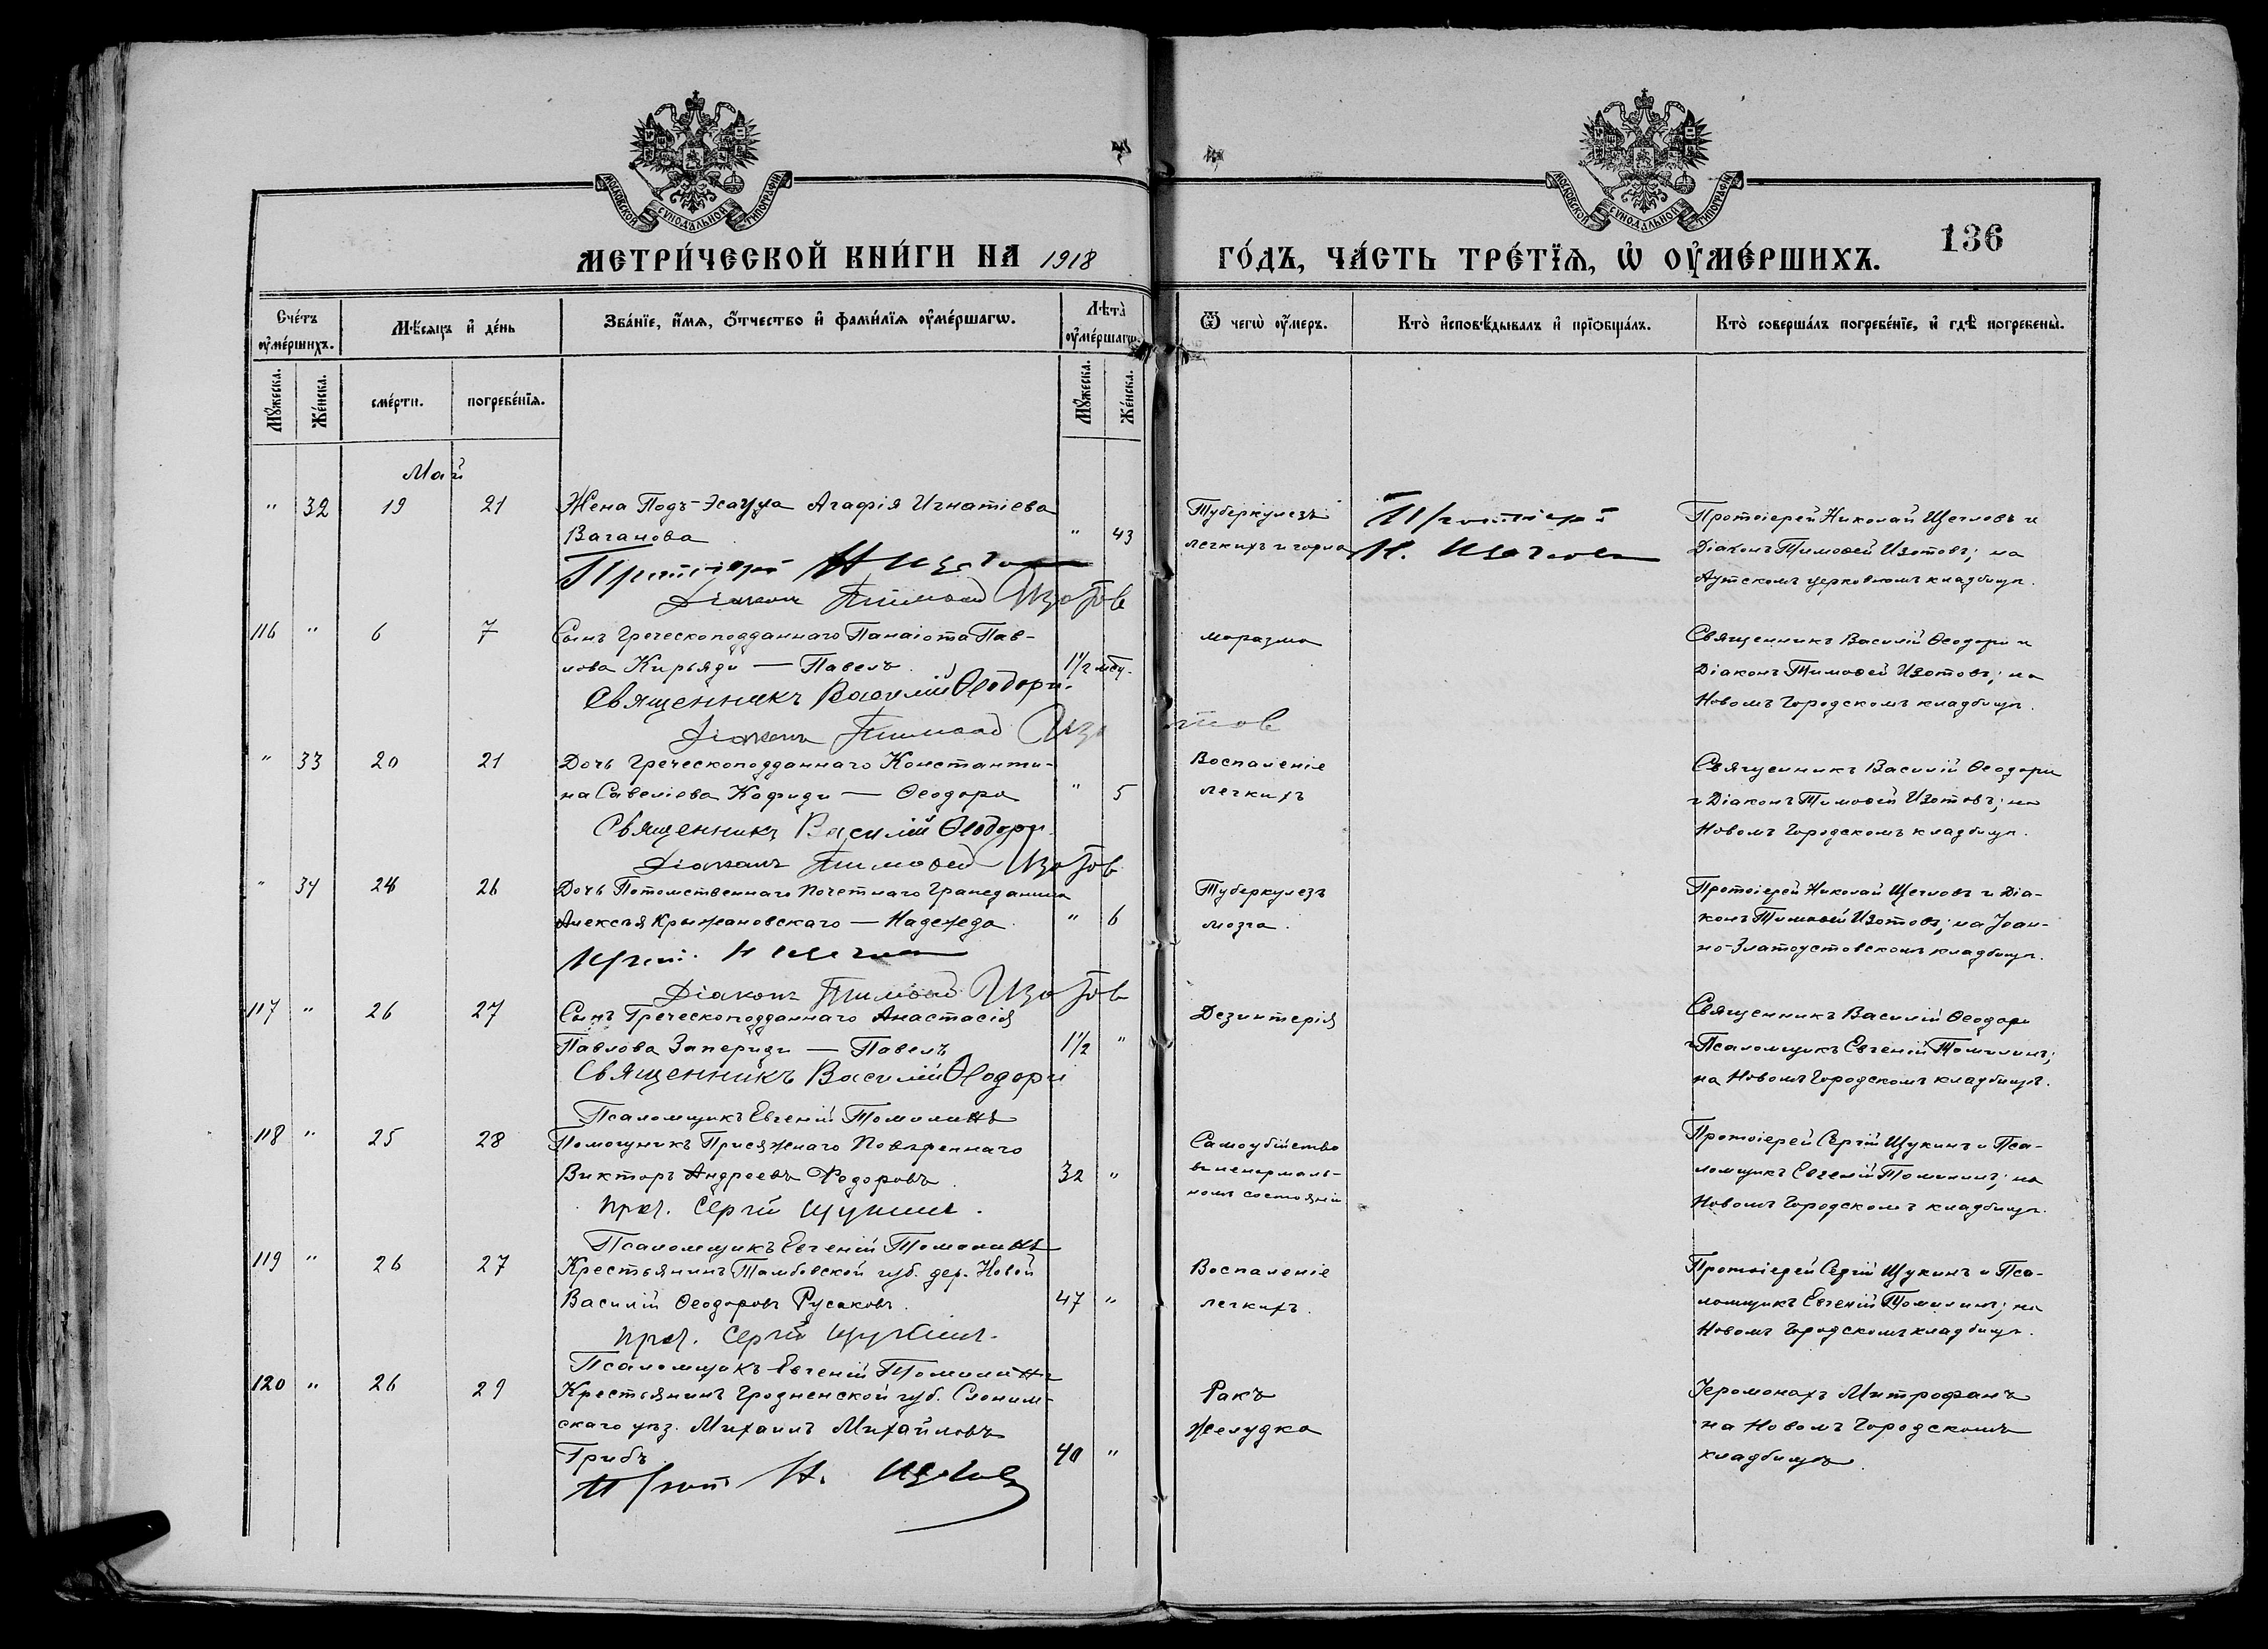 МОСКОВСКОЙ СУНОДАЛЬНОЙ ТИПОГРАФІИ
МОСКОВСКОЙ СУНОДАЛЬНОЙ ТИПОГРАФІИ
МЕТРИ́ЧЕСКОЙ КНИ́ГИ НА 1918
ГО́ДЪ, ЧА́СТЬ ТРЕ́ТЇѦ, Ѡ҆ ОУ҆МЕ́РШИХЪ.
136
Сче́тъ оу҆ме́ршихъ.
Мѣ́сяцъ и҆ де́нь
Зва́нїе, и҆́мя, ѻ҆́тчество и҆ фами́лїя оу҆ме́ршагѡ.
Лѣта̀ оу҆ме́ршагѡ.
Ѿ чегѡ̀ оу҆́меръ.
Кто̀ и҆сповѣ́дывалъ и҆ прїѻбща́лъ.
Кто̀ соверша́лъ погребе́нїе, и҆ гдѣ̀ погребены̀.
Мꙋ́жеска.
Же́нска.
сме́рти.
погребе́нїя.
Мꙋ́жеска.
Же́нска.
Май
" 32 19 21 Жена Подъ-Эсаула Агафія Игнатіева
Ваганова " 43
Протоіерей Н Щеглов
Діаконъ Тимоѳей Изотов
Туберкулезъ
легкихъ и горла
Протоіерей
Н. Щеглов
Протоіерей Николай Щегловъ и
Діаконъ Тимоѳей Изотовъ; на
Аутскомъ церковномъ кладбищѣ.
116 " 6 7 Сынъ Греческоподданнаго Панаіота Пав-
лова Кирьяди — Павелъ 1½ мѣс.
Священникъ Василій Ѳеодори.
Діаконъ Тимоѳей Изотов
маразма
Священникъ Василій Ѳеодори и
Діаконъ Тимоѳей Изотовъ; на
Новомъ Городскомъ кладбищѣ.
" 33 20 21 Дочь Греческоподданнаго Константи-
на Савеліева Кофиди — Ѳеодора " 5
Священникъ Василій Ѳеодори.
Діаконъ Тимоѳей Изотов
Воспаленіе
легкихъ
Священникъ Василій Ѳеодори
и Діаконъ Тимоѳей Изотовъ; на
Новомъ Городскомъ кладбищѣ.
" 34 24 26 Дочь Потомственнаго Почетнаго Гражданина
Алексѣя Крыжановскаго — Надежда. " 6
Прот. Н Щеглов
Діаконъ Тимоѳей Изотов
Туберкулезъ
мозга.
Протоіерей Николай Щегловъ и Діа-
конъ Тимоѳей Изотовъ; на Іоан-
но-Златоустовскомъ кладбищѣ.
117 " 26 27 Сынъ Греческоподданнаго Анастасія
Павлова Запериди — Павелъ 1½ "
Священникъ Василій Ѳеодори
Псаломщикъ Евгеній Томилинъ
Дезинтерія
Священникъ Василій Ѳеодори
и Псаломщикъ Евгеній Томилинъ;
на Новомъ Городскомъ кладбищѣ.
118 " 25 28 Помощникъ Присяжнаго Повѣреннаго
Викторъ Андреевъ Федоровъ. 32 "
Прот. Сергій Щукинъ.
Псаломщикъ Евгеній Томилинъ
Самоубійство
въ ненормаль-
номъ состояніи
Протоіерей Сергій Щукинъ и Пса-
ломщикъ Евгеній Томилинъ; на
Новомъ Городскомъ кладбищѣ.
119 " 26 27 Крестьянинъ Тамбовской губ. дер. Новой
Василій Ѳеодоровъ Русаковъ. 47 "
Прот. Сергій Щукинъ.
Псаломщикъ Евгеній Томилинъ
Воспаленіе
легкихъ.
Протоіерей Сергій Щукинъ и Пса-
ломщикъ Евгеній Томилинъ; на
Новомъ Городскомъ кладбищѣ.
120 " 26 29 Крестьянинъ Гродненской губ. Слоним-
скаго уѣз. Михаилъ Михайловъ
Грибъ 40 "
Прот Н. Щеглов
Ракъ
желудка
Іеромонахъ Митрофанъ
на Новомъ Городскомъ
кладбищѣ.